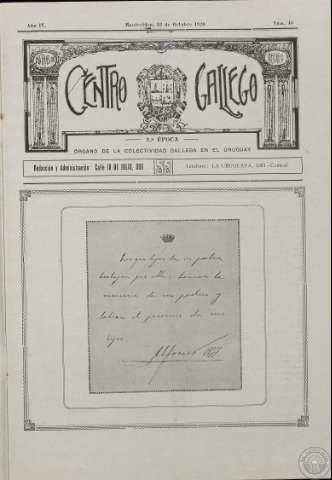 Año IV.
Montevideo, 22 de Octubre 1920
Núm. 40
CENTRO GALLEGO
2.a ÉPOCA
ÓRGANO DE LA COLECTIVIDAD GALLEGA EN EL URUGUAY
Redacción y Administración: Calle 18 DE JULIO,
Teléfono: LA URUGUAYA, - Central
Los que lejos de su patria
trabajan por ella, honran la
memoria de sus padres y
labran el porvenir de sus
hijos
Alfonso XIII